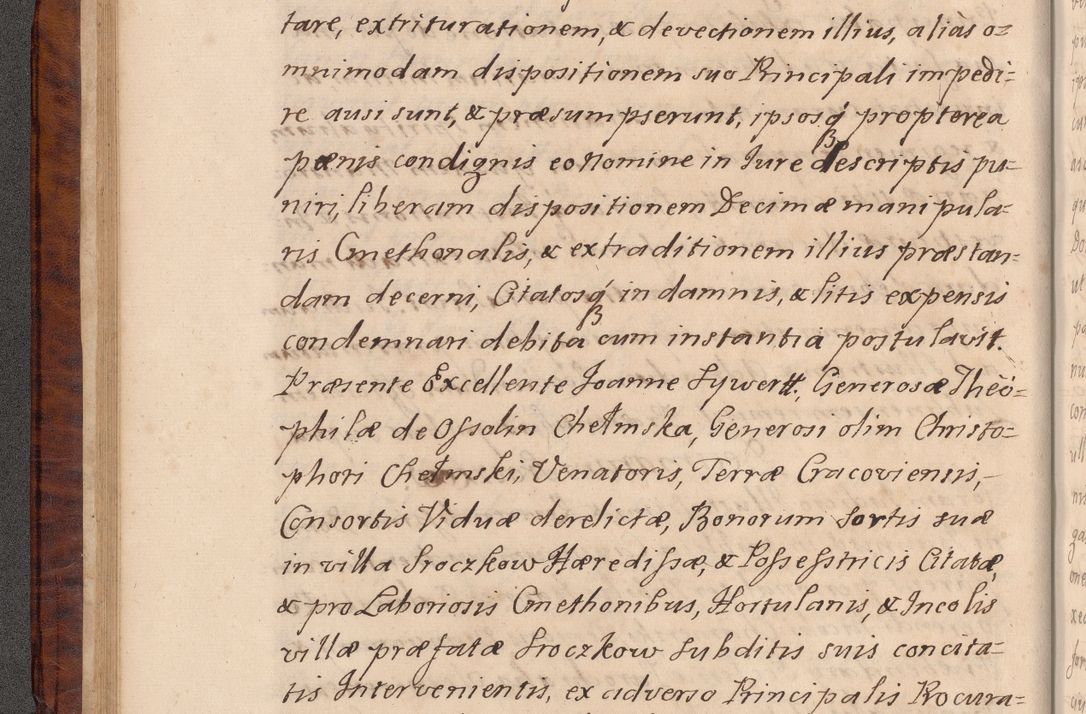 tare, extriturationem, & devectionem illius, aliàs o=
mnimodam dispositionem suo Principali impedi=
re ausi sunt, & præsumpserunt, ipsosq́ꝫ propterea
pœnis condignis eo nomine in Iure descriptis pu=
niri, liberam dispositionem Decimæ manipula=
ris Cmethonalis, & extraditionem illius præstan=
dam decerni, Citatosq́ꝫ in damnis, & litis expensis
condemnari debita cum instantia postulavit.
Præsente Excellente Joanne Sywertt, Generosæ Theo=
philæ de Ossolin Chełmska, Generosi olim Christo=
phori Chełmski, Venatoris, Terræ Cracoviensis,
Consortis Viduæ derelictæ, Bonorum sortis suæ
in villa Sroczkow Hæredissæ, & Possesstricis Citatæ,
& pro Laboriosis Cmethonibus, Hortulanis, & Incolis
villæ præfatæ Sroczkow subditis suis concita=
tis Intervenientis, ex adverso Principalis Procura=